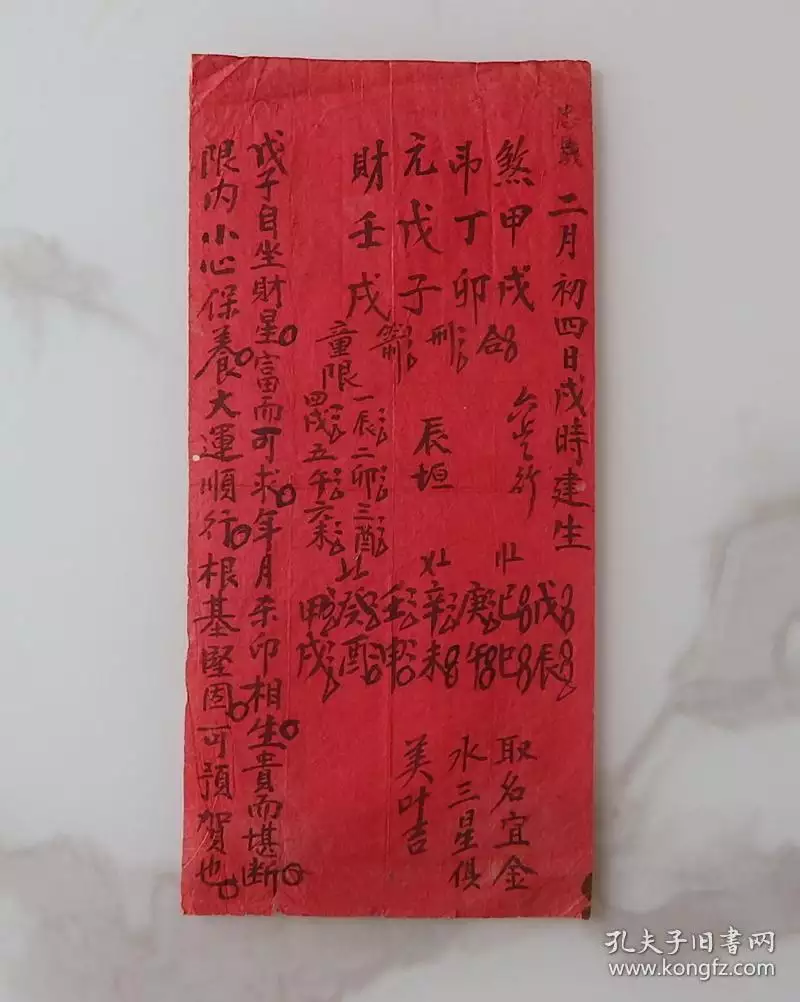 二月初四日戌時建生
煞甲戌合
卬丁卯刑
元戊子
財壬戌
六歲行
辰垣
童限一辰二卯三酉
四戌五午六未
戊辰
己巳
庚午
辛未
壬申
癸酉
甲戌
取名宜金
水三星俱
美叶吉
戊子自坐財星富而可求年月杀印相生貴而堪断
限内小心保養大運順行根基堅固可預賀也
孔夫子旧書网
www.kongfz.com